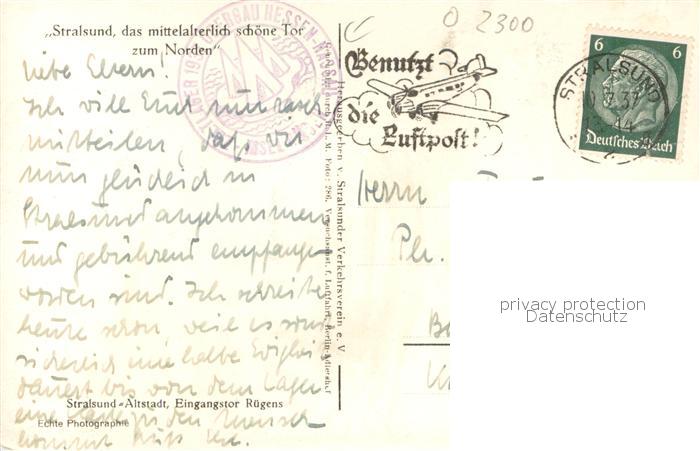 „Stralsund, das mittelalterlich schöne Tor
zum Norden"
Liebe Eltern!
Ich will Euch nur rasch
mitteilen, daß wir
nun glücklich in
Stralsund angekommen
und gebührend empfangen
worden sind. Ich schreibe
heute schon, weil es sonst
sicherlich eine halbe Ewigkeit
dauert bis von dem Lager
eine Karte zu den
kommt
Stralsund-Altstadt, Eingangstor Rügens
Echte Photographie
OBERGAU HESSEN-NASSAU
Herausgegeben v. Stralsunder Verkehrsverein e. V.
Foto: 286, Versuchsanst. f. Luftfahrt, Berlin-Adlershof
O 2300
Benutzt
die
Luftpost!
STRALSUND
37
6 6
Deutsches Reich
Herrn
privacy protection
Datenschutz